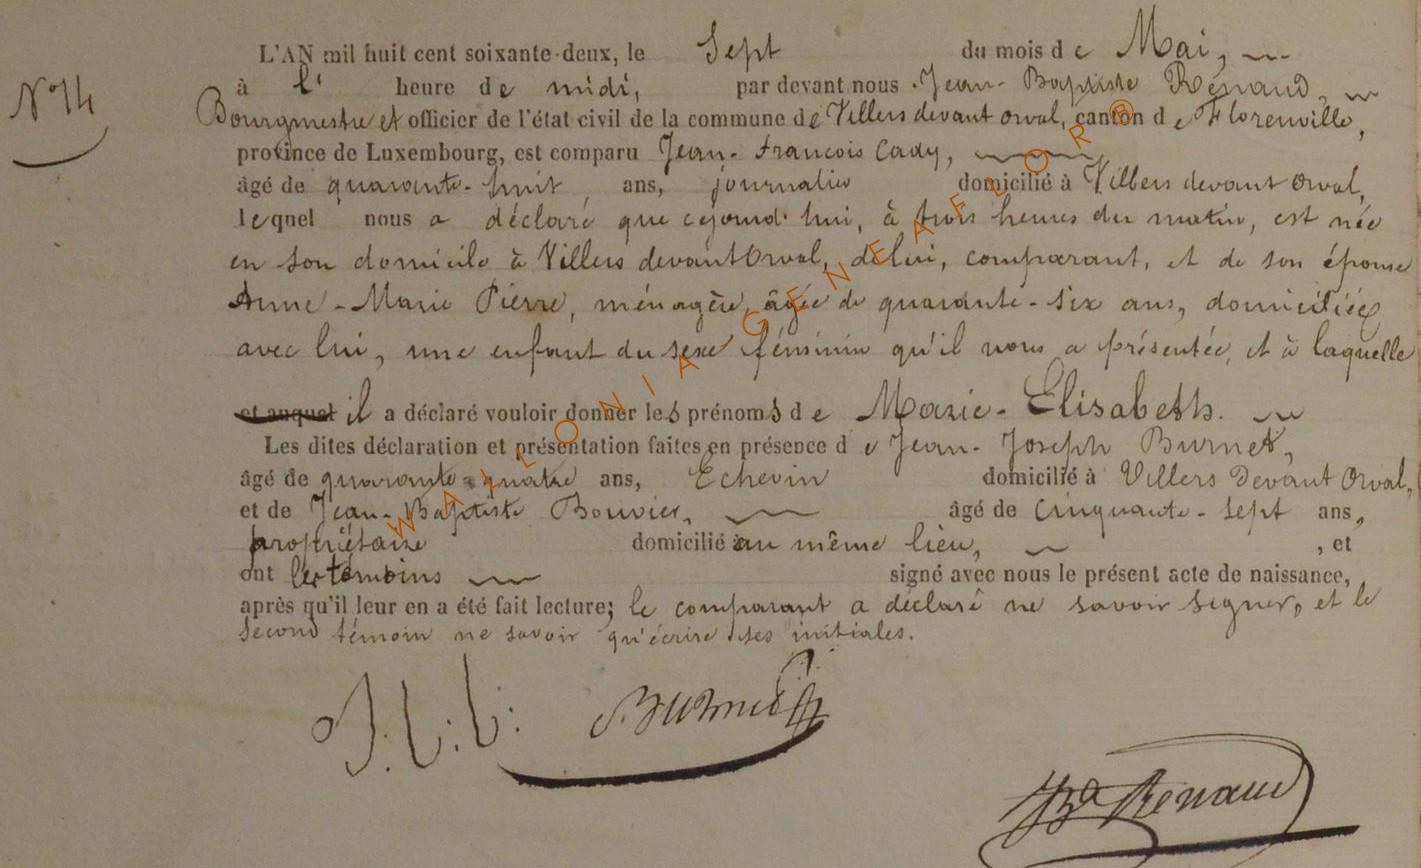 L'AN mil huit cent soixante-deux, le Sept du mois de Mai,
N° 14
à l' heure de midi, par devant nous Jean-Baptiste Renaud,
Bourgmestre et officier de l'état civil de la commune de Villers devant orval, canton de Florenville,
province de Luxembourg, est comparu Jean-Francois Cady,
âgé de quarante-huit ans, journalier domicilié à Villers devant orval,
lequel nous a déclaré que cejourd'hui, à trois heures du matin, est née
en son domicile à Villers devant Orval, de lui, comparant, et de son épouse
Anne-Marie Pierre, ménagère, âgée de quarante-six ans, domiciliée
avec lui, une enfant du sexe féminin qu'il nous a présentée, et à laquelle
et auquel il a déclaré vouloir donner les prénoms de Marie-Elisabeth.
Les dites déclaration et présentation faites en présence de Jean-Joseph Burnet,
âgé de quarante-quatre ans, Echevin domicilié à Villers Devant Orval,
et de Jean-Baptiste Bouvier, âgé de cinquante-sept ans,
propriétaire domicilié au même lieu, , et
ont les témoins signé avec nous le présent acte de naissance,
après qu'il leur en a été fait lecture; le comparant a déclaré ne savoir signer, et le
second témoin ne savoir qu'écrire ses initiales.
Burnet
Renaud
WALLONIA GENEAFLOR®